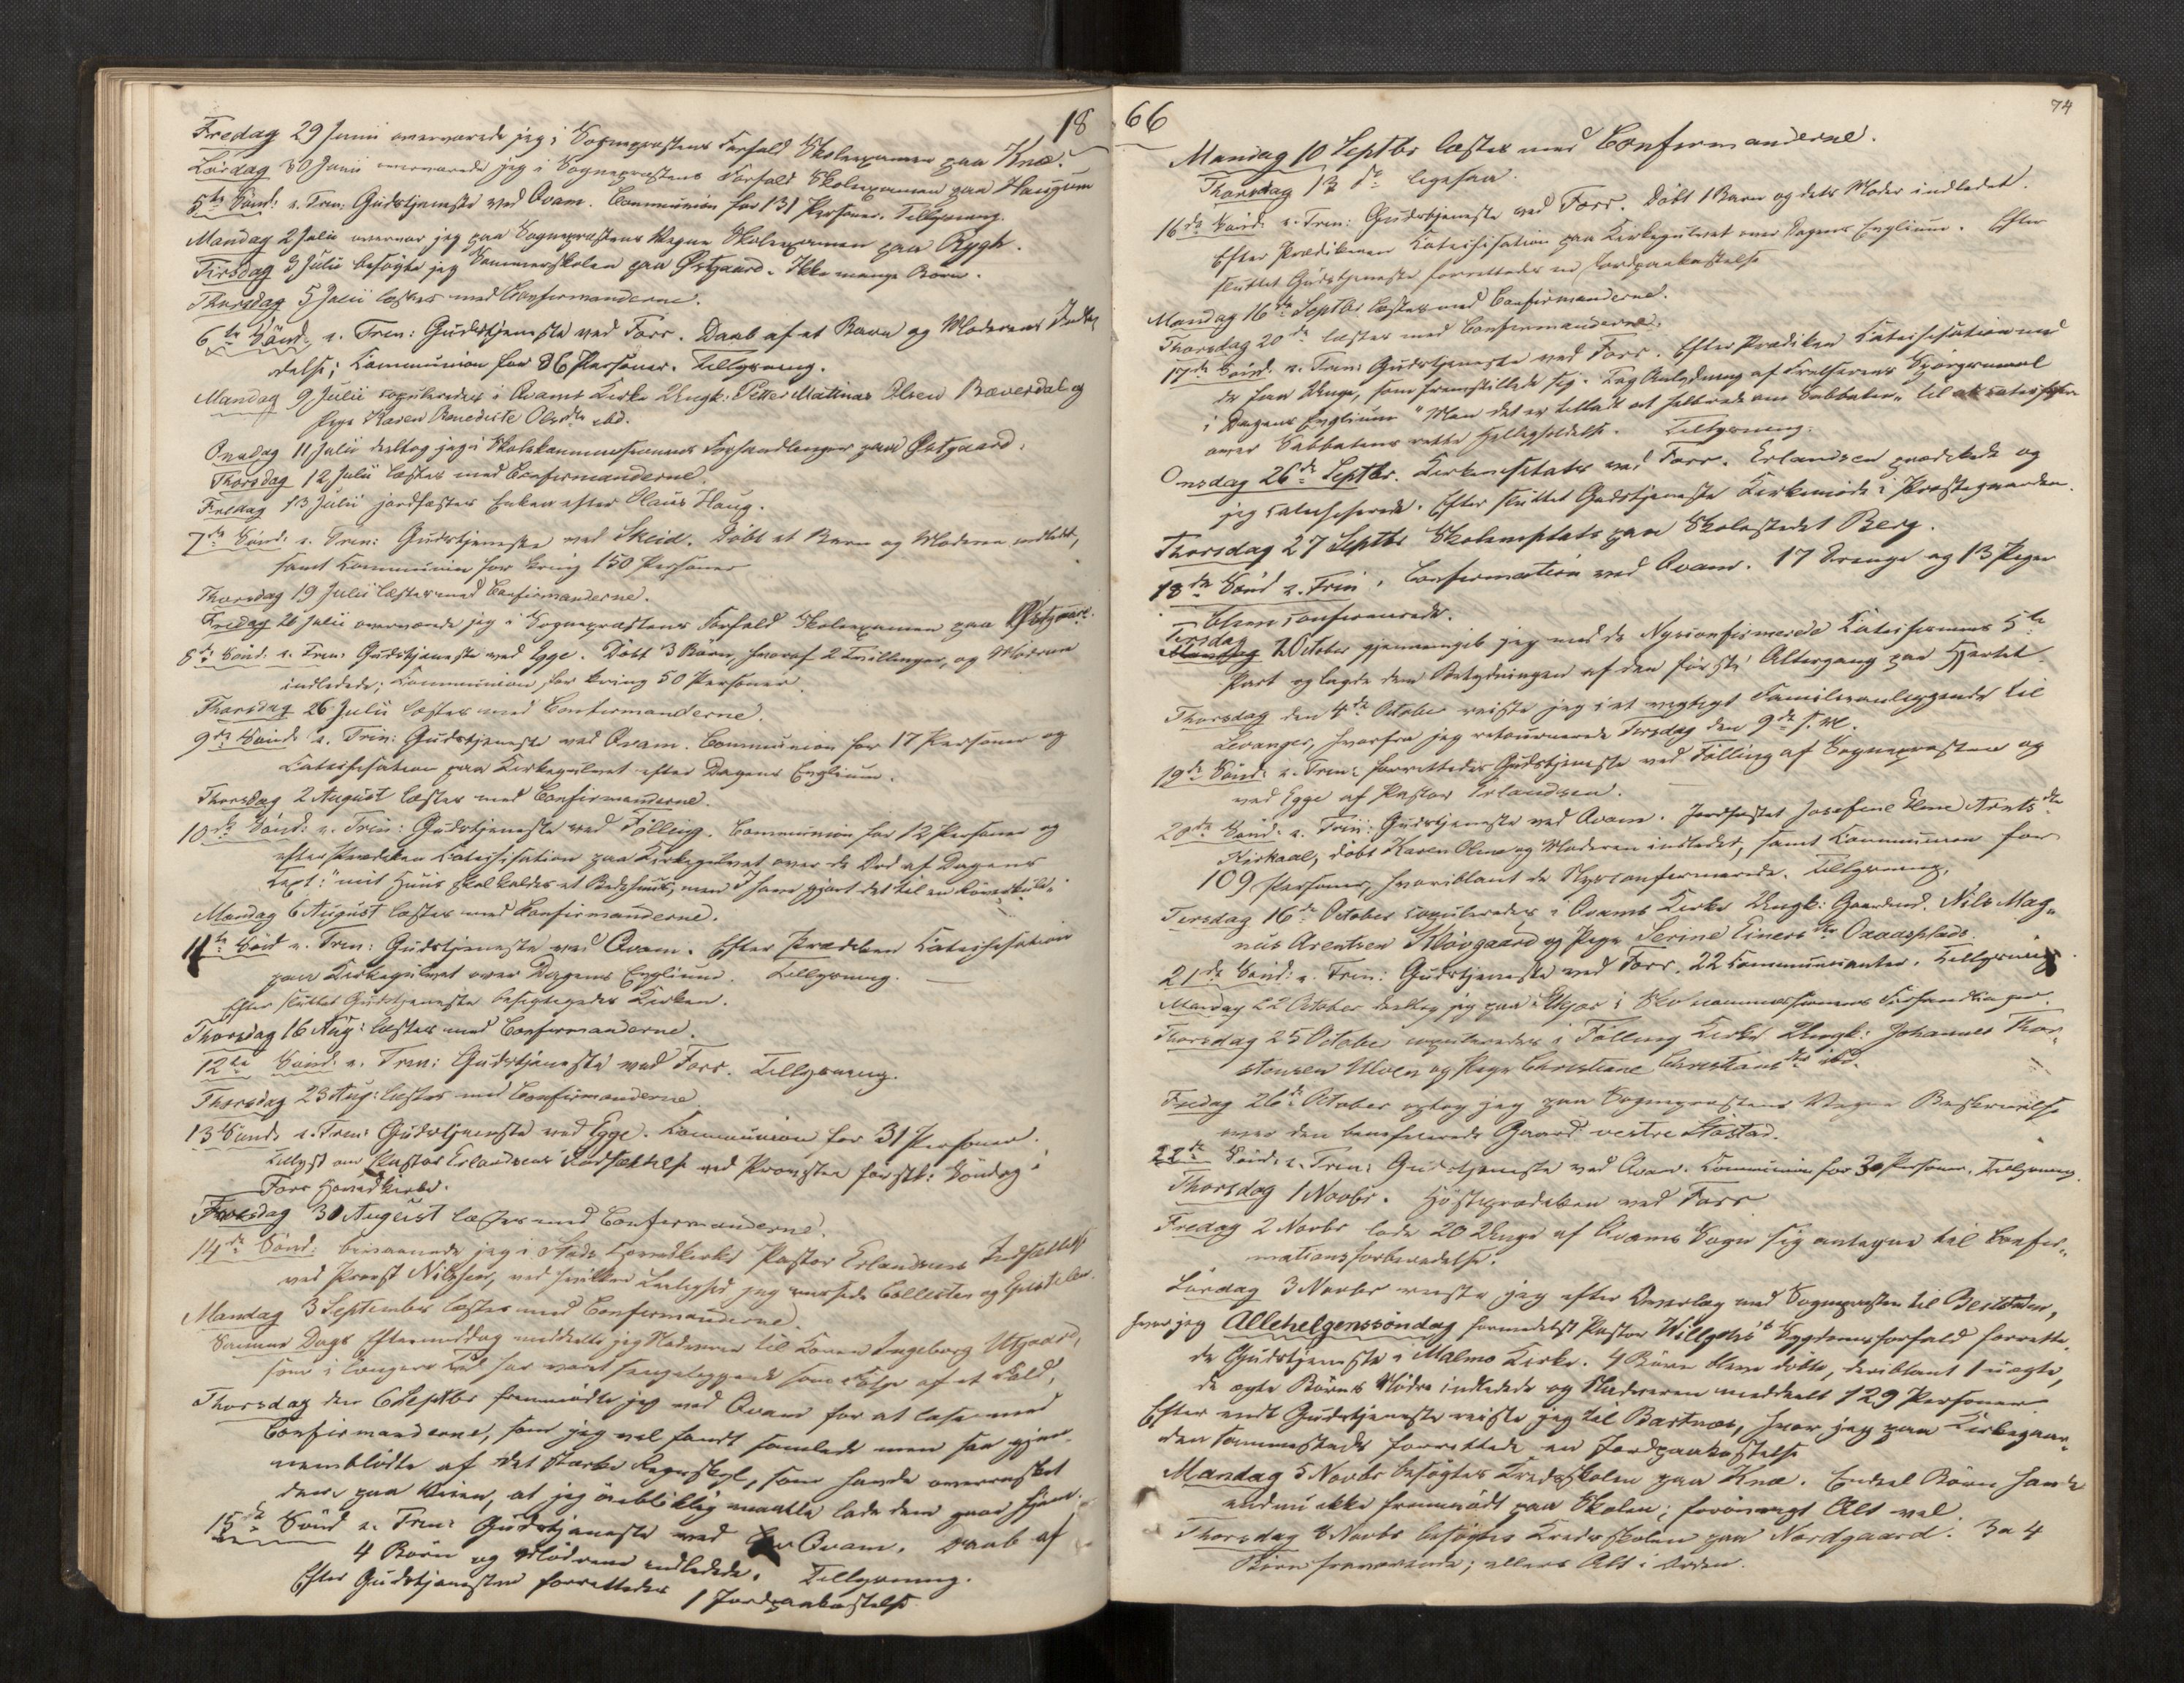 18
Fredag 29 Junii overværede jeg i Sognepræstens Forfald Skoleexamen paa Kne.
Lørdag 30 Junii overværede jeg i Sognepræstens Forfald Skoleexamen paa Haugum
5te Sönd: e. Trin: Gudstjeneste ved Qvam. Communion for 131 Personer. Tillysning.
Mandag 2 Julii overvar jeg paa Sognepræstens Vegne Skoleexamen paa Rygh.
Tirsdag 3 Julii besøgte jeg Sommerskolen paa Østgaard. Ikke mange Børn.
Thorsdag 5 Julii læstes med Confirmanderne.
6te Sönd. e. Trin: Gudstjeneste ved Forr. Daab af et Barn og Moderens Indle,
delse; Communion for 86 Personer. Tillysning.
Mandag 9 Julii copuleredes i Qvams Kirke Ungk: Petter Matinas Olsen Bæverdal og
Pige Karen Benedicte Olsdtr ibd.
Onsdag 11 Julii deeltog jeg i Skolekommissionens Forhandlinger paa Østgaard.
Thorsdag 12 Julii læstes med Confirmanderne.
Fredag 13 Julii jordfæstes Enken efter Olaus Haug.
7de Sönd. e. Trin: Gudstjeneste ved Skeid. Döbt et Barn og Moderen indledt,
samt Communion for kring 150 Personer
Thorsdag 19 Julii læstes med Confirmanderne.
Fredag 20 Julii overværede jeg i Sognepræstens Forfald Skoleexamen paa Østgaard.
8de Sönd. e. Trin: Gudstjeneste ved Egge. Döbt 3 Börn, hvoraf 2 Tvillinger, og Mödrene
indledede; Communion for kring 50 Personer.
Thorsdag 26 Julii læstes med Confirmanderne.
9de Sönd. e. Trin: Gudstjeneste ved Qvam. Communion for 17 Personer og
Catechisation paa Kirkegulvet efter Dagens Evglium.
Thorsdag 2 August læstes med Confirmanderne.
10de Sönd: e. Trin: Gudstjeneste ved Følling. Communion for 12 Personer og
efter Prædiken Catechisation paa Kirkegulvet over de Ord af Dagens
Text: "mit Huus skal kaldes et Bedehuus, men I have gjort det til en Röverkule"
Mandag 6 August læstes med Confirmanderne.
11te Sönd e. Trin: Gudstjeneste ved Qvam. Efter Prædiken Catechisation
paa Kirkegulvet over Dagens Evglium. Tillysning.
Efter sluttet Gudstjeneste besigtigedes Kirken.
Thorsdag 16 Aug: læstes med Confirmanderne.
12te Sönd: e. Trin: Gudstjeneste ved Forr. Tillysning.
Thorsdag 23 Aug: læstes med Confirmanderne
13 Sönd. e. Trin: Gudstjeneste ved Egge. Communion for 31 Personer.
Tillyst om Pastor Erlandsens Indsættelse ved Provsten förstk: Söndag i
Forr Hovedkirke.
Thorsdag 30 August læstes med Confirmanderne.
14de Sönd: bivaanede jeg i Stods Hovedkirke Pastor Erlandsens Indsættelse
ved Provst Nilssen, ved hvilken Leilighed jeg messede Collecten og Epistelen.
Mandag 3 September læstes med Confirmanderne.
Samme Dags Eftermiddag meddelte jeg Nadveren til Konen Ingeborg Utgaard,
som i længere Tid har været sengeliggende som Følge af et Fald.
Thorsdag den 6 Septbr fremmödte jeg ved Qvam for at læse med
Confirmanderne, som jeg vel fandt samlede men saa gjen-
nemblödte af det stærke Regnskyl, som havde overrasket
dem paa Veien, at jeg öieblikelig maatte lade dem gaae hjem.
15de Sönd e. Trin: Gudstjeneste ved Qvam. Daab af
4 Börn og Mödrene indledede. Tillysning.
Efter Gudstjenesten forrettedes 1 Jordpaakastelse.
66
74
Mandag 10 Septbr læstes med Confirmanderne.
Thorsdag 13 do ligesaa.
16de Sönd. e. Trin: Gudstjeneste ved Forr. Döbt 1 Barn og dets Moder indledet.
Efter Prædikenen Catechisation paa Kirkegulvet over Dagens Evglium. Efter
sluttet Gudstjeneste forrettedes en Jordpaakastelse
Mandag 16de Septbr læstes med Confirmanderne.
Thorsdag 20de læstes med Confirmanderne.
17de Sönd. e. Trin: Gudstjeneste ved Forr. Efter Prædiken Catechisation med
de faa Unge, som fremstillede sig. Tog Anledning af Frelserens Spörgsmaal
i Dagens Evglium "Mon det er tilladt at helbrede om Sabbaten" til at catechisere
over Sabbatens rette Helligholdelse. Tillysning.
Onsdag 26de Septbr. Kirkevisitats ved Forr. Erlandsen prædikede og
jeg catechiserede. Efter sluttet Gudstjeneste Kirkemöde i Præstegaarden.
Thorsdag 27 Septbr Skolevisitats paa Skolestedet Berg.
18de Sönd e. Trin. Confirmation ved Qvam. 17 Drenge og 13 Piger
bleve confirmerede.
Tirsdag 2 October gjennemgik jeg med de Nysconfirmerede Catechismens 5te
Part og lagde dem Betydningen af den förste Altergang paa Hjertet.
Thorsdag den 4de October reiste jeg i et vigtigt Familieanliggende til
Levanger, hvorfra jeg retournerede Tirsdag den 9de s. M.
19de Sönd: e. Trin: forrettedes Gudstjeneste ved Følling af Sognepræsten og
ved Egge af Pastor Erlandsen.
20de Sönd: e. Trin: Gudstjeneste ved Qvam. Jordfæstet Josefine Eline Arntsdtr
Kirkaal, döbt Karen Oline og Moderen indledet, samt Communion for
109 Personer, hvoriblant de Nysconfirmerede. Tillysning.
Tirsdag 16de October copuleredes i Qvams Kirke Ungk: Gaardmd. Nils Mag-
nus Arentsen Klövgaard og Pige Serine Einersdtr Qvadsplads.
21de Sönd: e. Trin: Gudstjeneste ved Forr. 22 Communicanter. Tillysning.
Mandag 22 October deeltog jeg paa i Skolecommissionens Forhandlinger.
Thorsdag 25 October copuleredes i Følling Kirke Ungk: Johannes Thor-
stensen Ulven og Pige Christiane Christiansdtr ibd.
Fredag 26de October optog jeg paa Sognepræstens Vegne Beskrivelse
over den beneficerede Gaard vestre Høstad.
22de Sönd. e. Trin: Gudstjeneste ved Qvam. Communion for 30 Personer. Tillysning.
Thorsdag 1 Novbr. Höstprædiken ved Forr
Fredag 2 Novbr lode 20 Unge af Qvams Sogn sig antegne til Confir-
mationsforberedelse.
Lørdag 3 Novbr reiste jeg efter Overlæg med Sognepræsten til Beitstaden,
hvor jeg Allehelgenssöndag formedelst Pastor Sygdomsforfald forrette-
de Gudstjeneste i Malmo Kirke. 4 Börn bleve döbte, deriblant 1 uægte,
de ægte Börns Mödre indledede og Nadveren meddeelt 129 Personer.
Efter endt Gudstjeneste reiste jeg til Bartnæs, hvor jeg paa Kirkegaar-
den sammesteds forrettede en Jordpaakastelse
Mandag 5 Novbr besøgtes Kredsskolen paa Kne. Endeel Börn havde
endnu ikke fremmödt paa Skolen; foröövrigt Alt vel.
Thorsdag 8 Novbr besøgtes Kredsskolen paa Nordgaard. 3 a 4
Börn fraværende; ellers Alt i Orden.